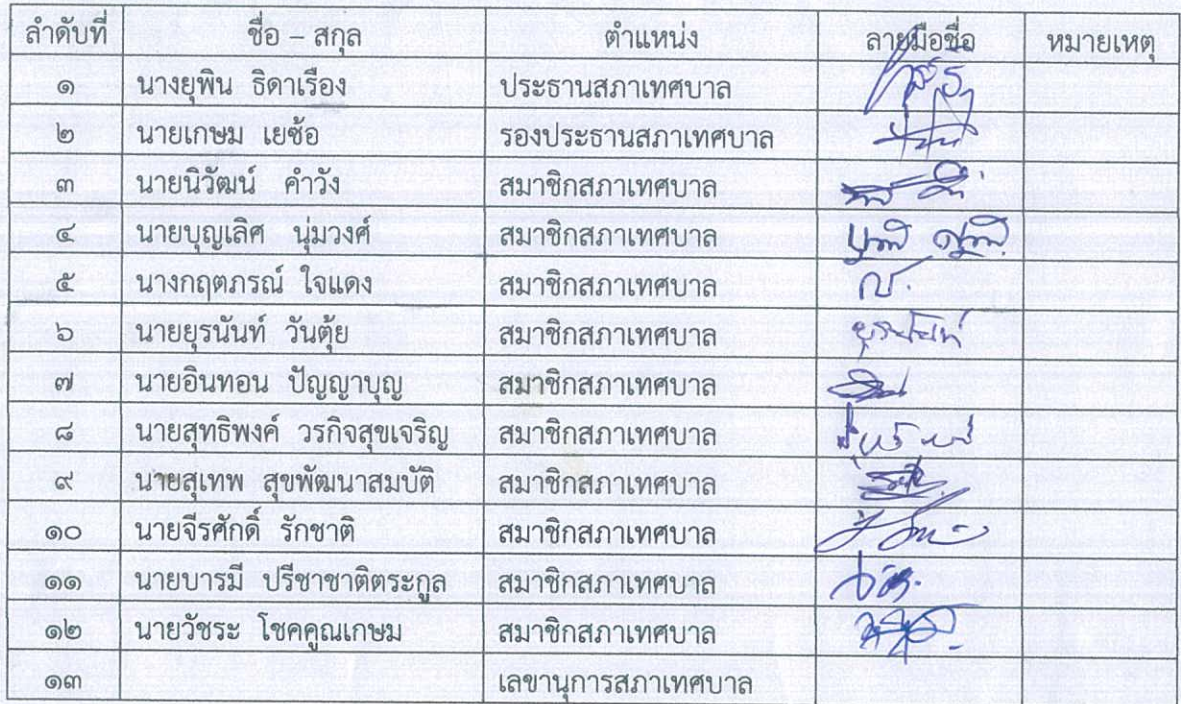 ลำดับที่ ชื่อ – สกุล ตำแหน่ง ลายมือชื่อ หมายเหตุ
๑ นางยุพิน ธิดาเรือง ประธานสภาเทศบาล
๒ นายเกษม เยซ้อ รองประธานสภาเทศบาล
๓ นายนิวัฒน์ คำวัง สมาชิกสภาเทศบาล
๔ นายบุญเลิศ นุมวงศ์ สมาชิกสภาเทศบาล
๕ นางกฤตภรณ์ ใจแดง สมาชิกสภาเทศบาล
๖ นายยุรนันท์ วันตุ้ย สมาชิกสภาเทศบาล ยุรนันท์
๗ นายอินทอน ปัญญาบุญ สมาชิกสภาเทศบาล
๘ นายสุทธิพงค์ วรกิจสุขเจริญ สมาชิกสภาเทศบาล
๙ นายสุเทพ สุขพัฒนาสมบัติ สมาชิกสภาเทศบาล
๑๐ นายจีรศักดิ์ รักชาติ สมาชิกสภาเทศบาล
๑๑ นายบารมี ปรีชาชาติตระกูล สมาชิกสภาเทศบาล
๑๒ นายวัชระ โชคคูณเกษม สมาชิกสภาเทศบาล
๑๓ เลขานุการสภาเทศบาล